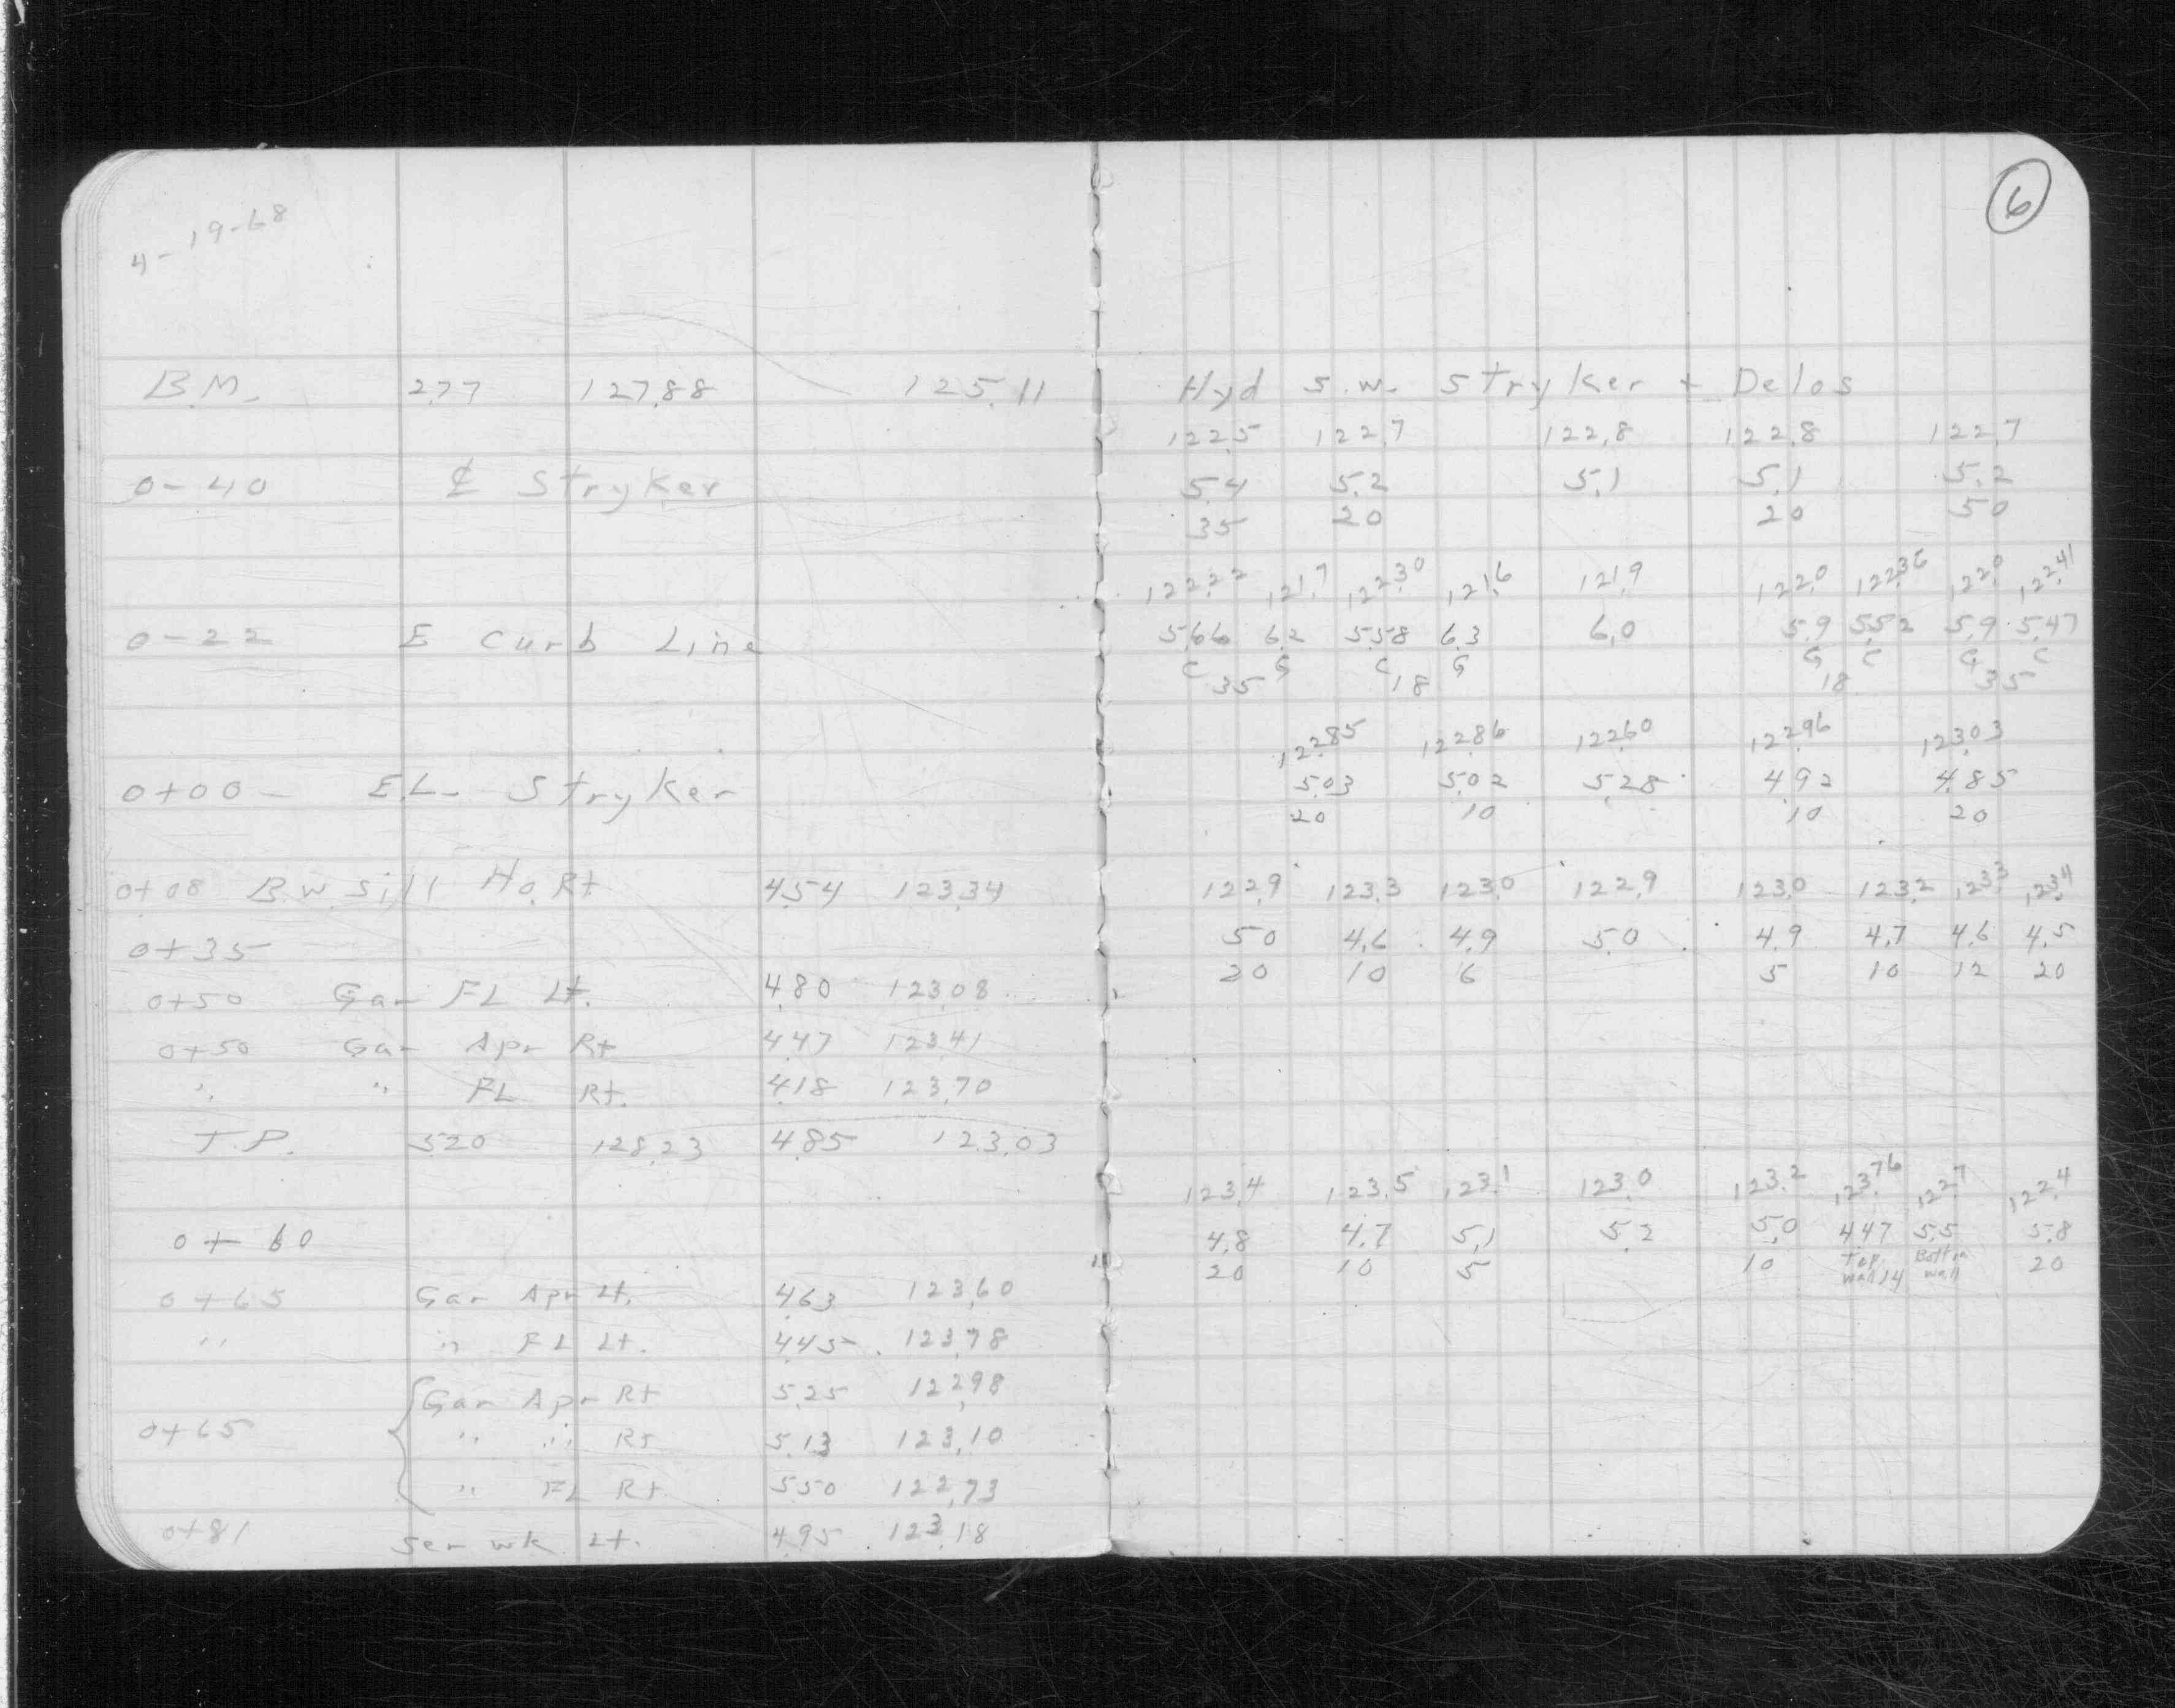 6
4-19-68
B.M. 2.77 127.88 125.11 Hyd S.W. Stryker + Delos
122.5 122.7 122.8 122.8 122.7
0-40 ℄ Stryker 5.4 5.2 5.1 5.1 5.2
35 20 20 50
122.22 121.7 122.30 121.6 121.9 122.0 122.36 122.0 122.41
0-22 E Curb Line 5.66 6.2 5.58 6.3 6.0 5.9 5.52 5.9 5.47
C G C G G C G C
35 18 18 35
122.85 122.86 122.60 122.96 123.03
0+00 - E.L. Stryker 5.03 5.02 5.28 4.92 4.85
20 10 10 20
0+08 B.W. Sill Ho. Rt 4.54 123.34 122.9 123.3 123.0 122.9 123.0 123.2 123.3 123.4
0+35 5.0 4.6 4.9 5.0 4.9 4.7 4.6 4.5
20 10 6 5 10 12 20
0+50 Gar FL Lt. 4.80 123.08
0+50 Gar Apr Rt 4.47 123.41
" " FL Rt. 4.18 123.70
T.P. 5.20 128.23 4.85 123.03
123.4 123.5 123.1 123.0 123.2 123.76 122.7 122.4
0+60 4.8 4.7 5.1 5.2 5.0 4.47 5.5 5.8
20 10 5 10 Top wall 14 Bottm wall 20
0+65 Gar Apr Lt. 4.63 123.60
" " FL Lt. 4.45 123.78
Gar Apr Rt 5.25 122.98
0+65 " " Rt 5.13 123.10
" FL Rt 5.50 122.73
0+81 Ser wk Lt. 4.95 123.18